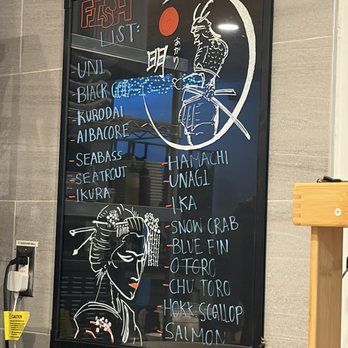 FISH
LIST:
UNI
BLACK
KURODAI
AIBACORE
SEABASS
SEATROUT
IKURA
明
あかり
HAMACHI
UNAGI
IKA
SNOW CRAB
BLUE FIN
O TORO
CHU TORO
HOKK SCALLOP
SALMON